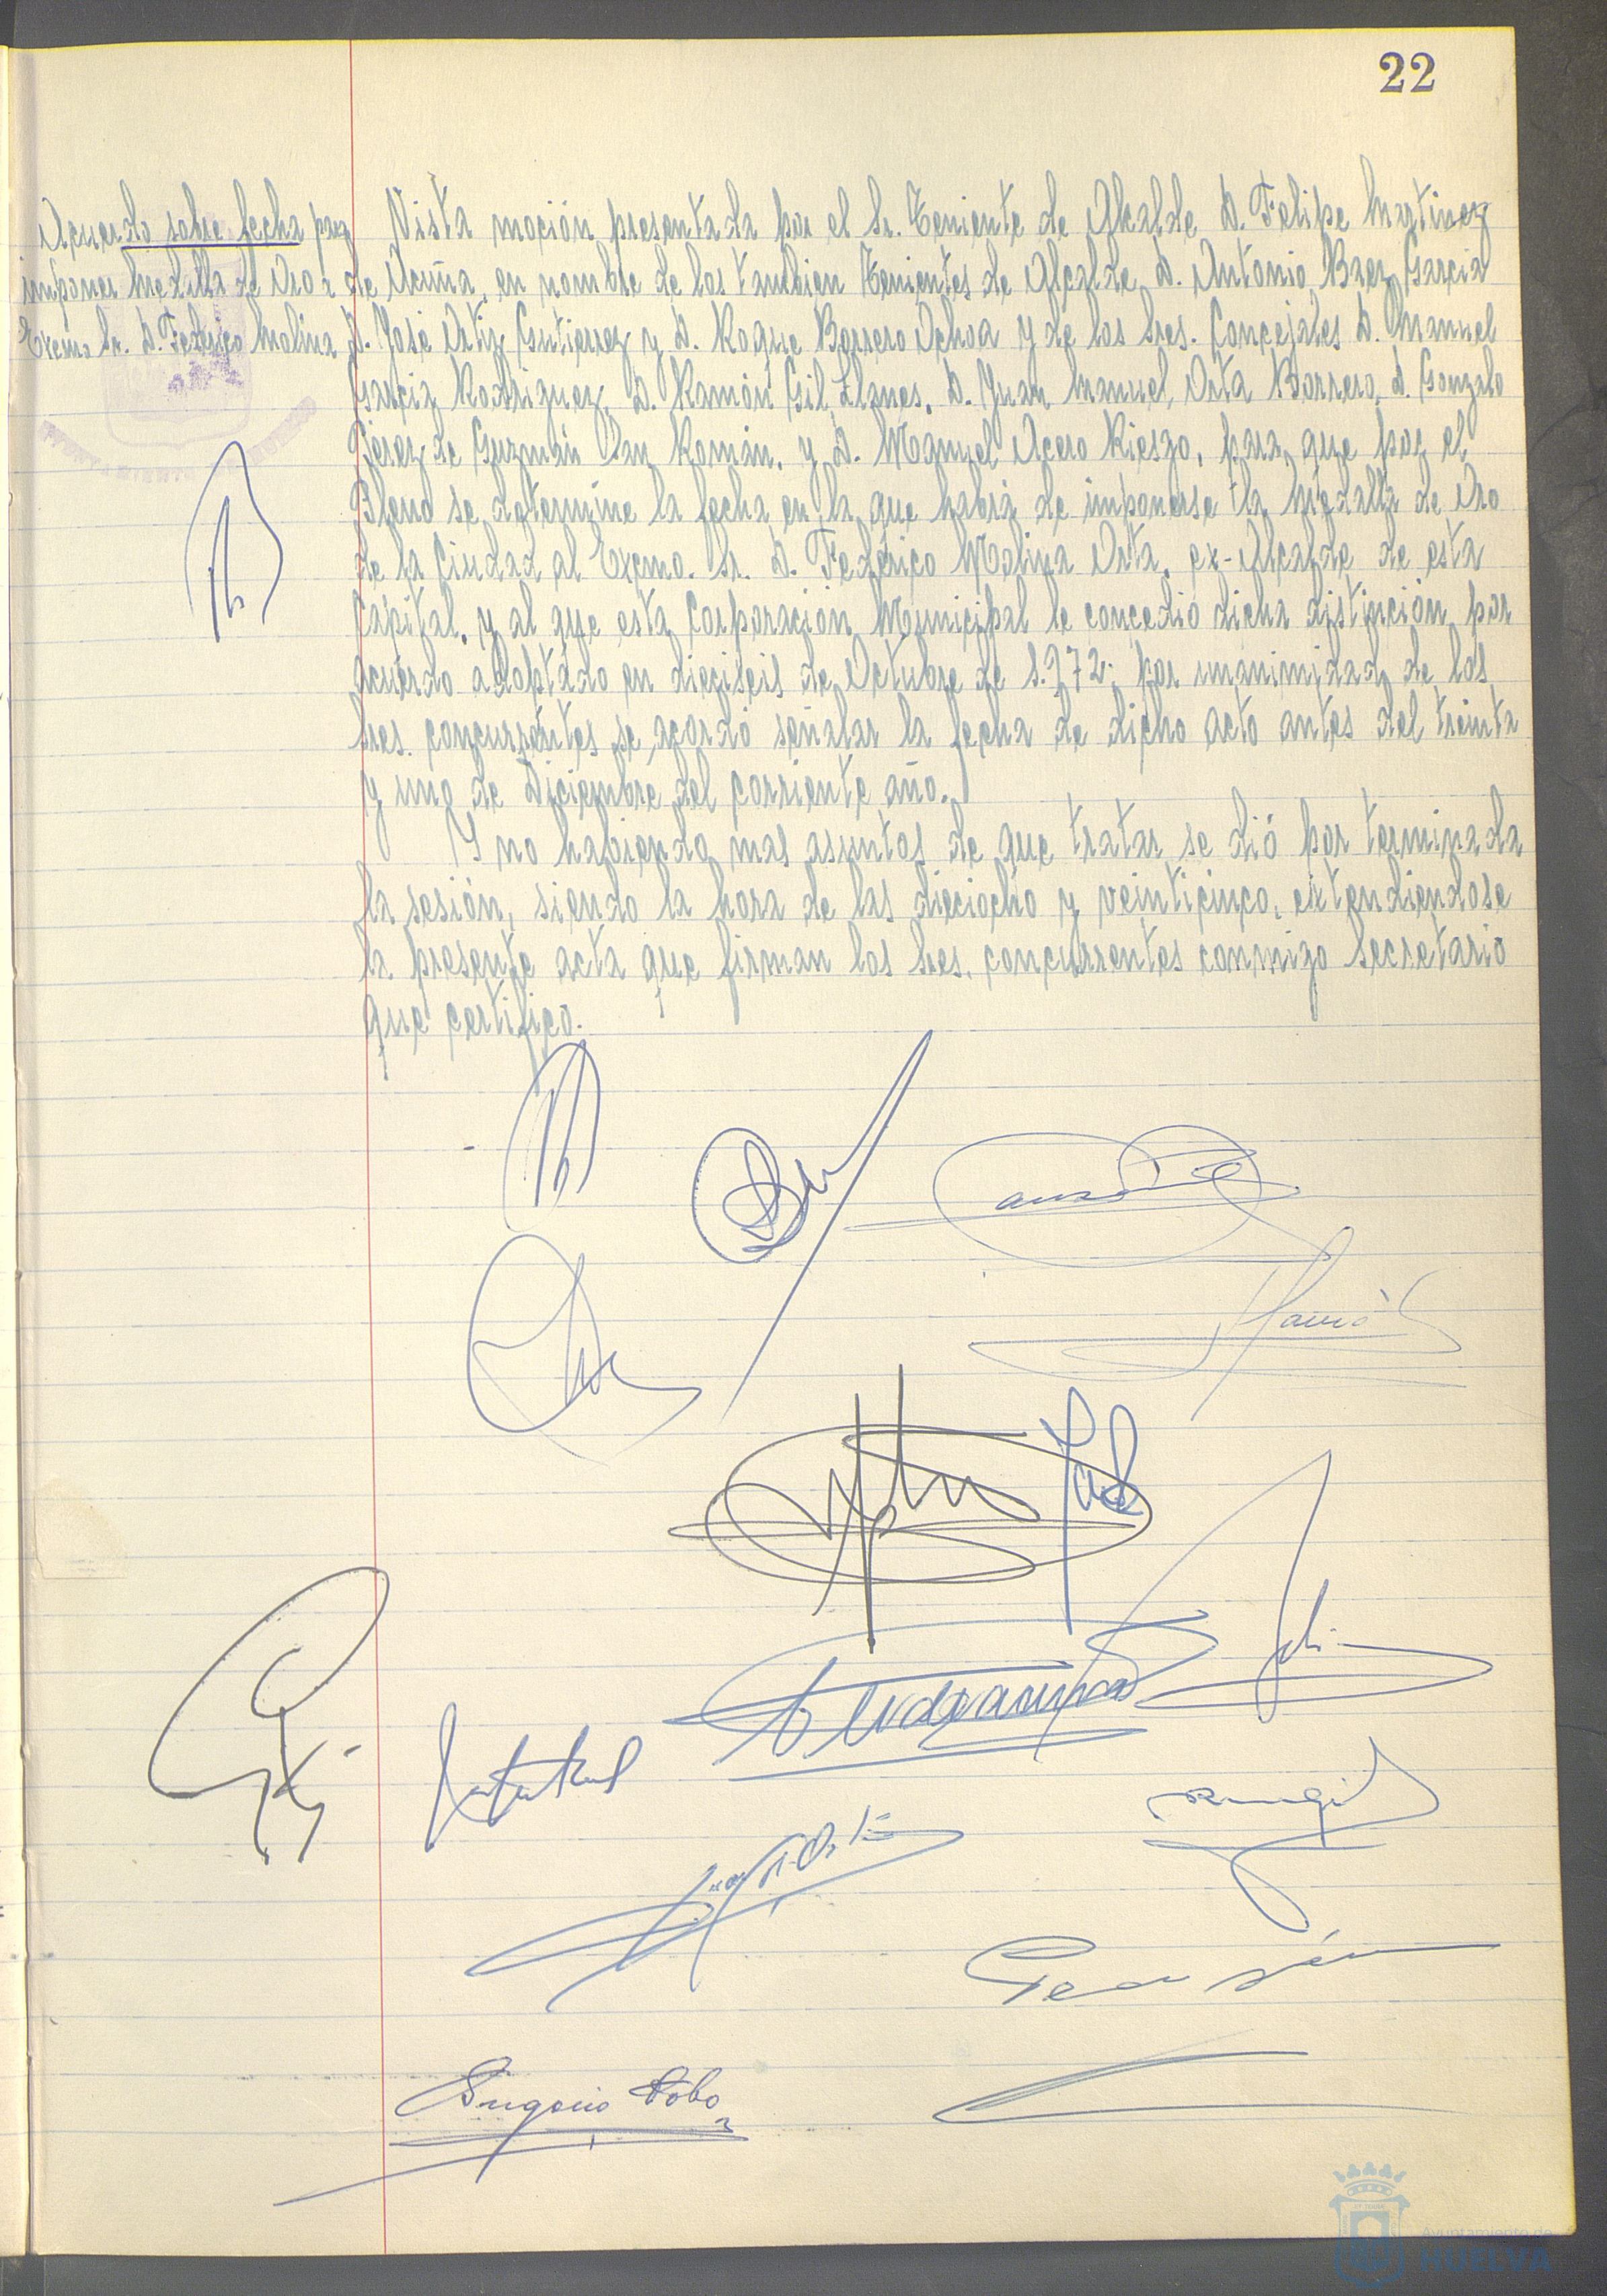 22
Acuerdo sobre fecha para
imponer Medalla de Oro a
Excmo. Sr. D. Federico Molina
Vista moción presentada por el Sr. Teniente de Alcalde D. Felipe Martinez
de Acuña, en nombre de los tambien Tenientes de Alcalde D. Antonio Baez Garcia
D. José Ortiz Gutierrez y D. Roque Borrero Ochoa y de los Sres. Concejales D. Manuel
Garcia Rodriguez, D. Ramón Gil Llanes, D. Juan Manuel Orta Borrero, D. Gonzalo
Perez de Guzmán San Román, y D. Manuel Acero Riesgo, para que por el
Pleno se determine la fecha en la que habrá de imponerse la Medalla de Oro
de la Ciudad al Excmo. Sr. D. Federico Molina Orta, ex-Alcalde de esta
Capital, y al que esta Corporación Municipal le concedió dicha distinción por
acuerdo adoptado en dieciseis de Octubre de 1.972; por unanimidad de los
Sres. concurrentes se acordó señalar la fecha de dicho acto antes del treinta
y uno de Diciembre del corriente año.
Y no habiendo mas asuntos de que tratar se dió por terminada
la sesión, siendo la hora de las dieciocho y veinticinco, extendiendose
la presente acta que firman los Sres. concurrentes conmigo Secretario
que certifico.
Eugenio Bobo
Ayuntamiento de
HUELVA